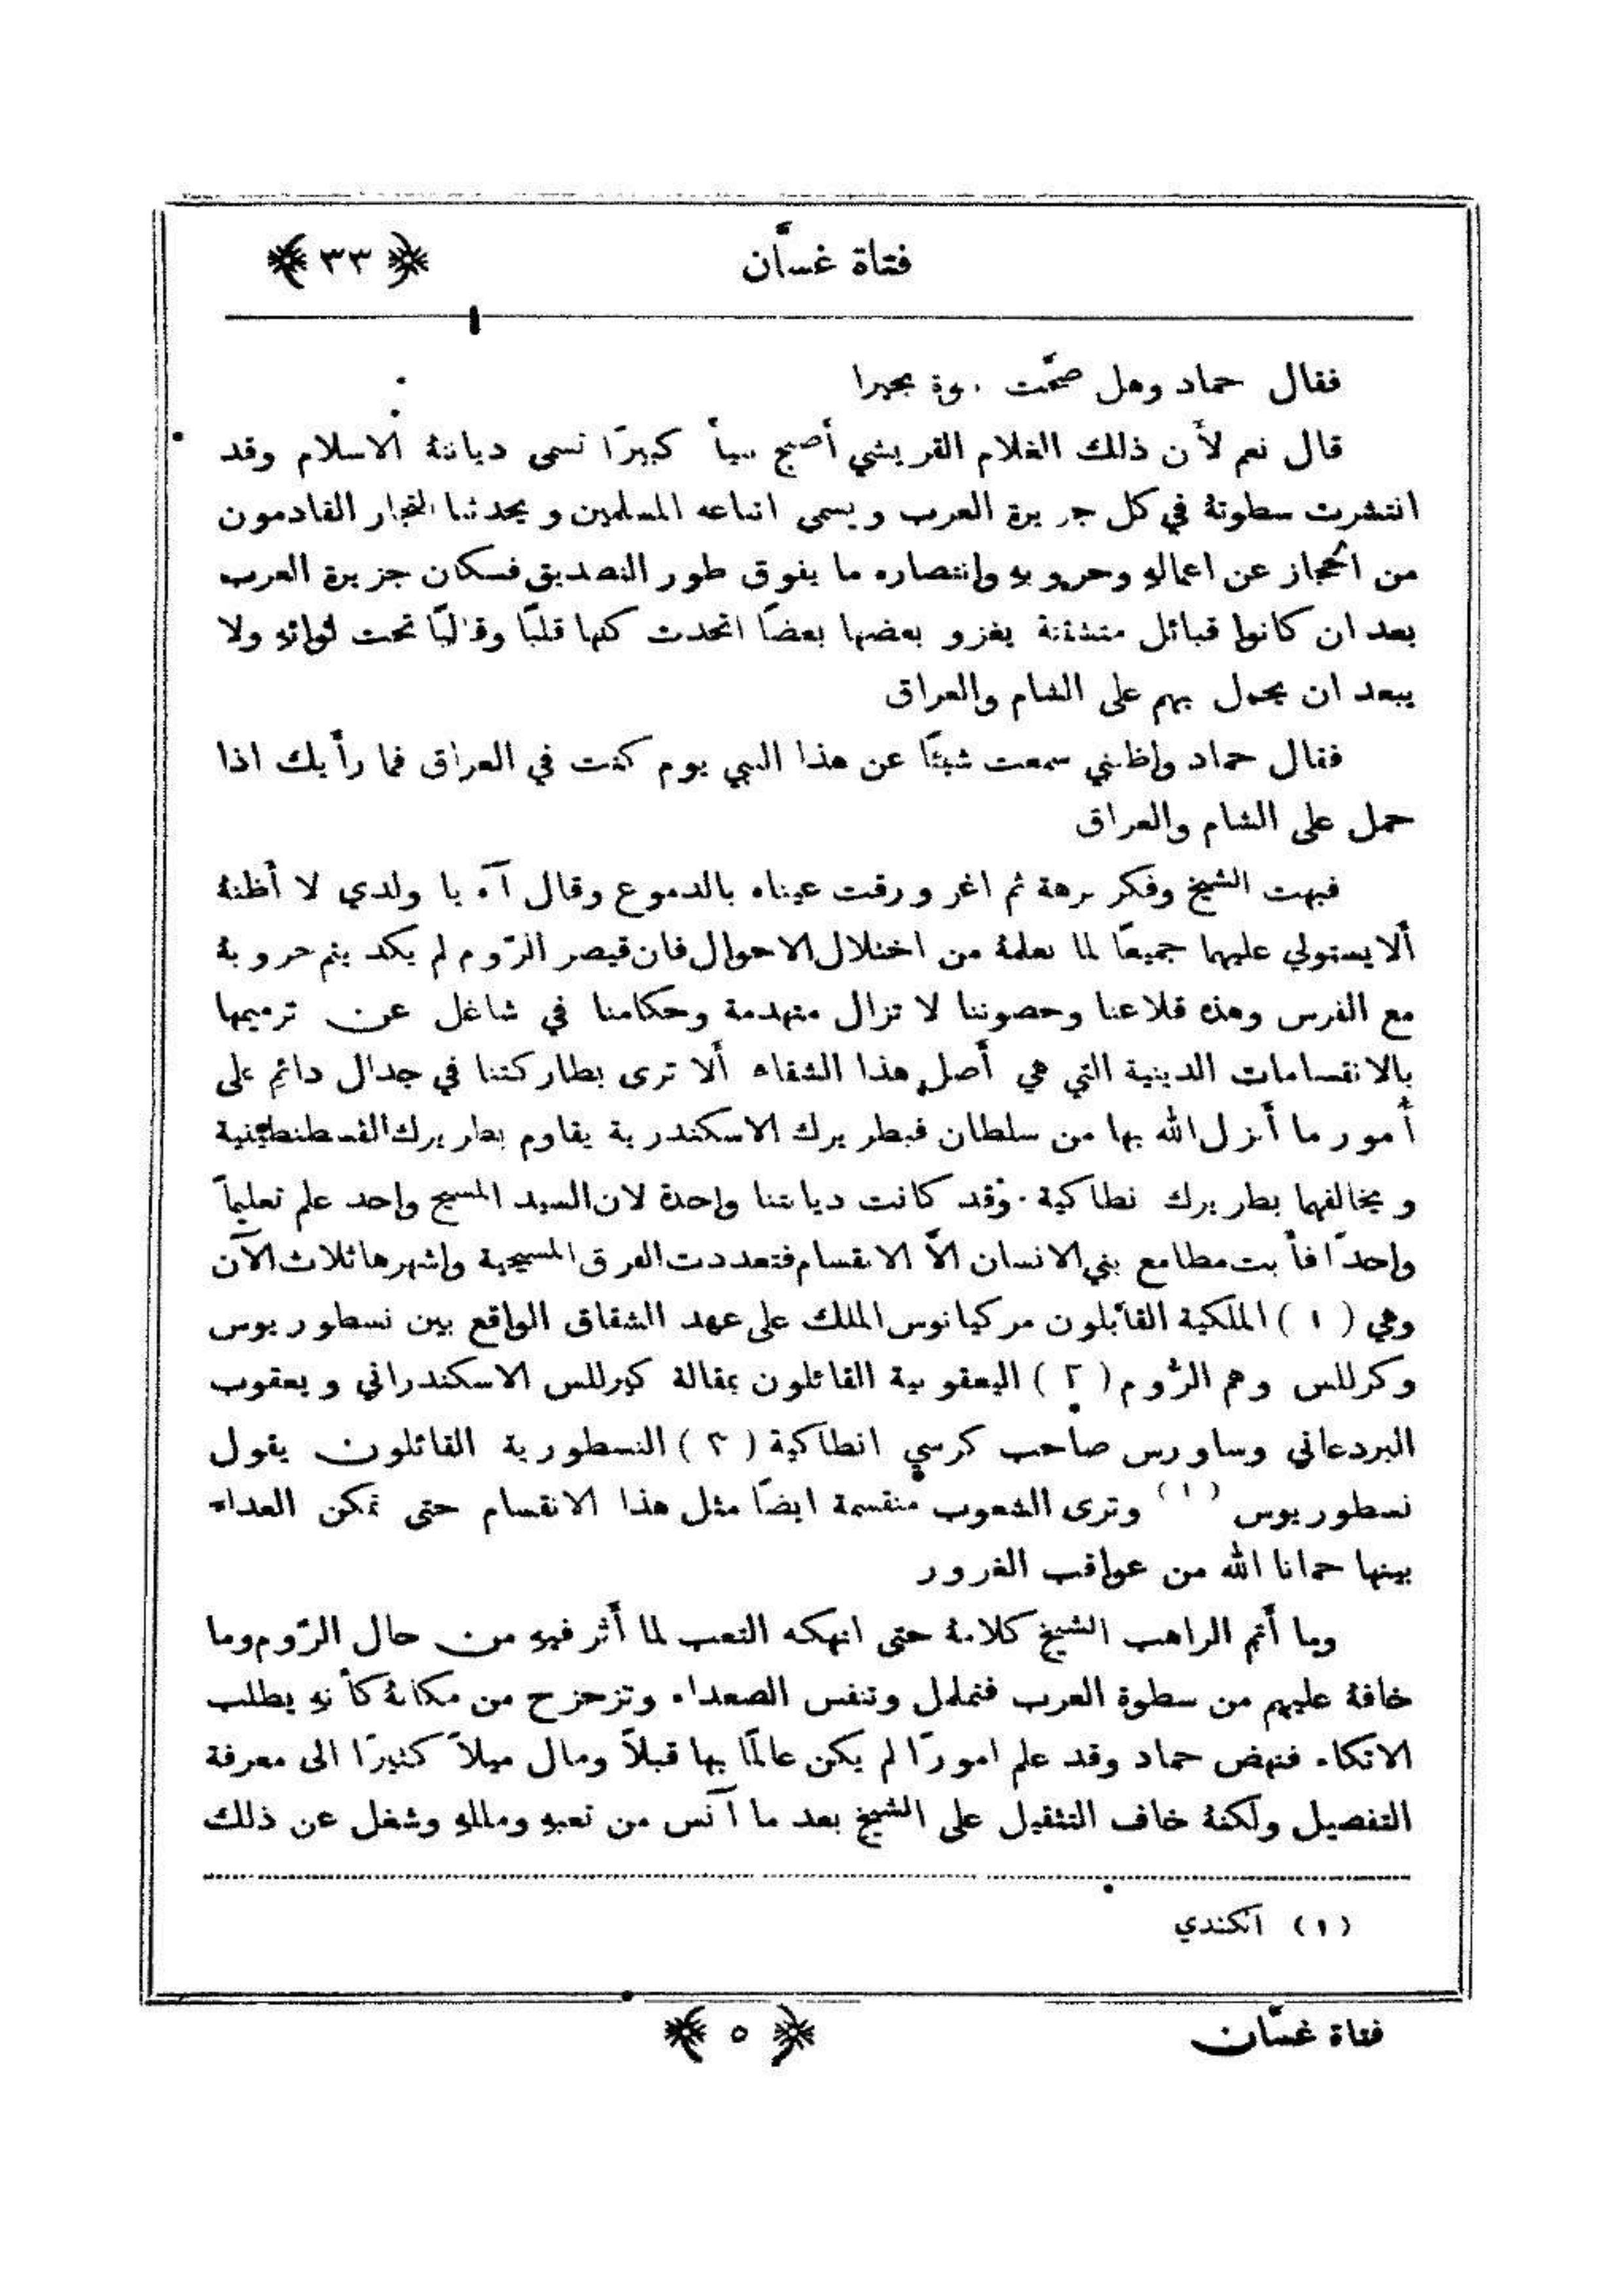 فتاة غسَّان
﴿ ٣٣ ﴾
فقال حماد وهل صحَّت بحيرا
قال نعم لأن ذلك الغلام القريشي أصبح كبيرًا تسمى ديانتهُ الاسلام وقد
انتشرت سطوتهُ في كل جزيرة العرب ويسمى اتباعه المسلمين ويحدثنا التجار القادمون
من الحجاز عن اعمالهِ وحروبهِ وانتصاره ما يفوق طور التصديق فسكان جزيرة العرب
بعد ان كانوا قبائل متشتتة يغزو بعضها بعضًا اتحدت كلها قلبًا وقالبًا تحت لوائهِ ولا
يبعد ان يحمل بهم على الشام والعراق
فقال حماد واظنني سمعت شيئًا عن هذا النبي يوم كنت في العراق فما رأيك اذا
حمل على الشام والعراق
فبهت الشيخ وفكر برهة ثم اغرورقت عيناه بالدموع وقال آه يا ولدي لا أظنهُ
ألا يستولي عليهما جميعًا لما نعلمهُ من اختلال الاحوال فان قيصر الرّوم لم يكد يتم حروبهُ
مع الفرس وهذه قلاعنا وحصوننا لا تزال متهدمة وحكامنا في شاغل عن ترميمها
بالانقسامات الدينية التي هي أصل هذا الشقاء ألا ترى بطاركتنا في جدال دائم على
أمور ما أنزل الله بها من سلطان فبطريرك الاسكندرية يقاوم بطريرك القسطنطينية
ويخالفهما بطريرك نطاكية. وقد كانت ديانتنا واحدة لان السيد المسيح واحد علم تعليماً
واحدًا فأبت مطامع بني الانسان الاَّ الانقسام فتعددت الفرق المسيحية واشهرها ثلاث الآن
وهي (١) الملكية القائلون مركيانوس الملك على عهد الشقاق الواقع بين نسطوريوس
وكرللس وهم الرُّوم (٢) اليعقوبية القائلون بمقالة كيرللس الاسكندراني ويعقوب
البردعاني وساورس صاحب كرسي انطاكية (٣) النسطورية القائلون بقول
نسطوريوس (١) وترى الشعوب منقسمة ايضًا مثل هذا الانقسام حتى تمكن العداء
بينها حمانا الله من عواقب الغرور
وما أتم الراهب الشيخ كلامهُ حتى انهكه التعب لما أثر فيهِ من حال الرّوم وما
خافهُ عليهم من سطوة العرب فتململ وتنفس الصعداء وتزحزح من مكانهُ كأنهِ يطلب
الاتكاء فنهض حماد وقد علم امورًا لم يكن عالمًا بها قبلاً ومال ميلاً كثيرًا الى معرفة
التفصيل ولكنهُ خاف التثقيل على الشيخ بعد ما آنس من تعبهِ ومللهِ وشغل عن ذلك
(١) الكندي
فتاة غسَّان
﴿ ٥ ﴾